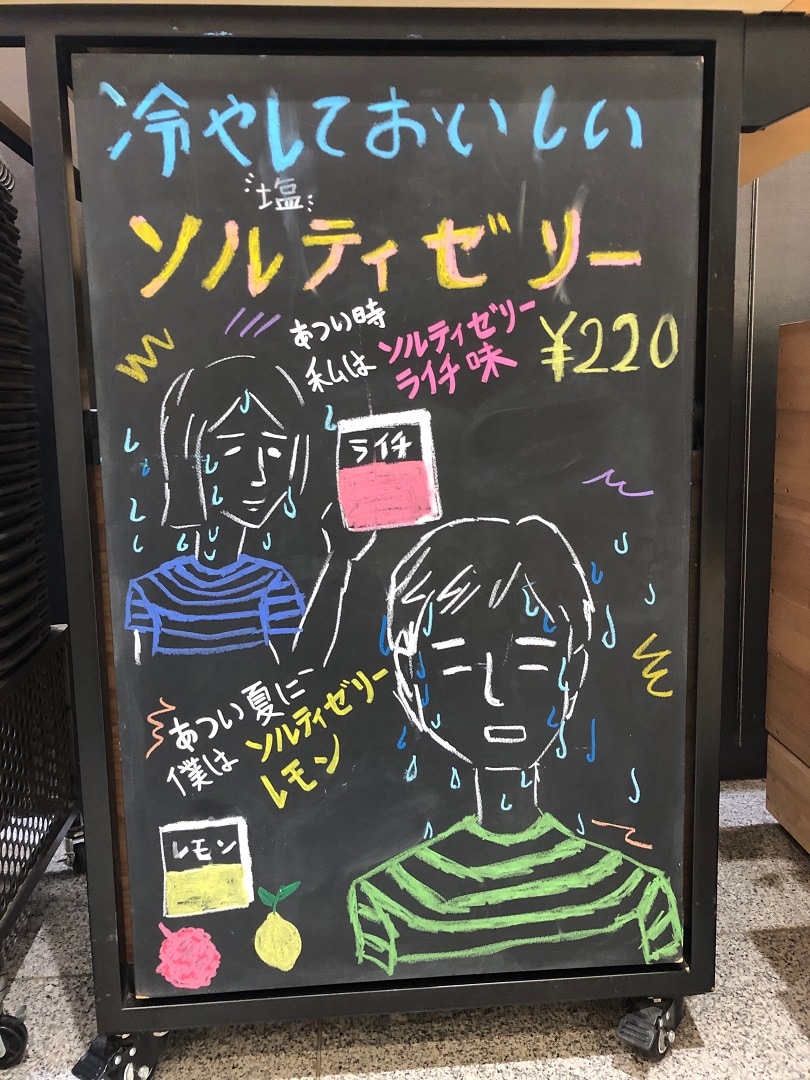 冷やしておいしい
塩
ソルティゼリー
¥220
あつい時
私は
ソルティゼリー
ライチ味
ライチ
あつい夏に
僕は
ソルティゼリー
レモン
レモン